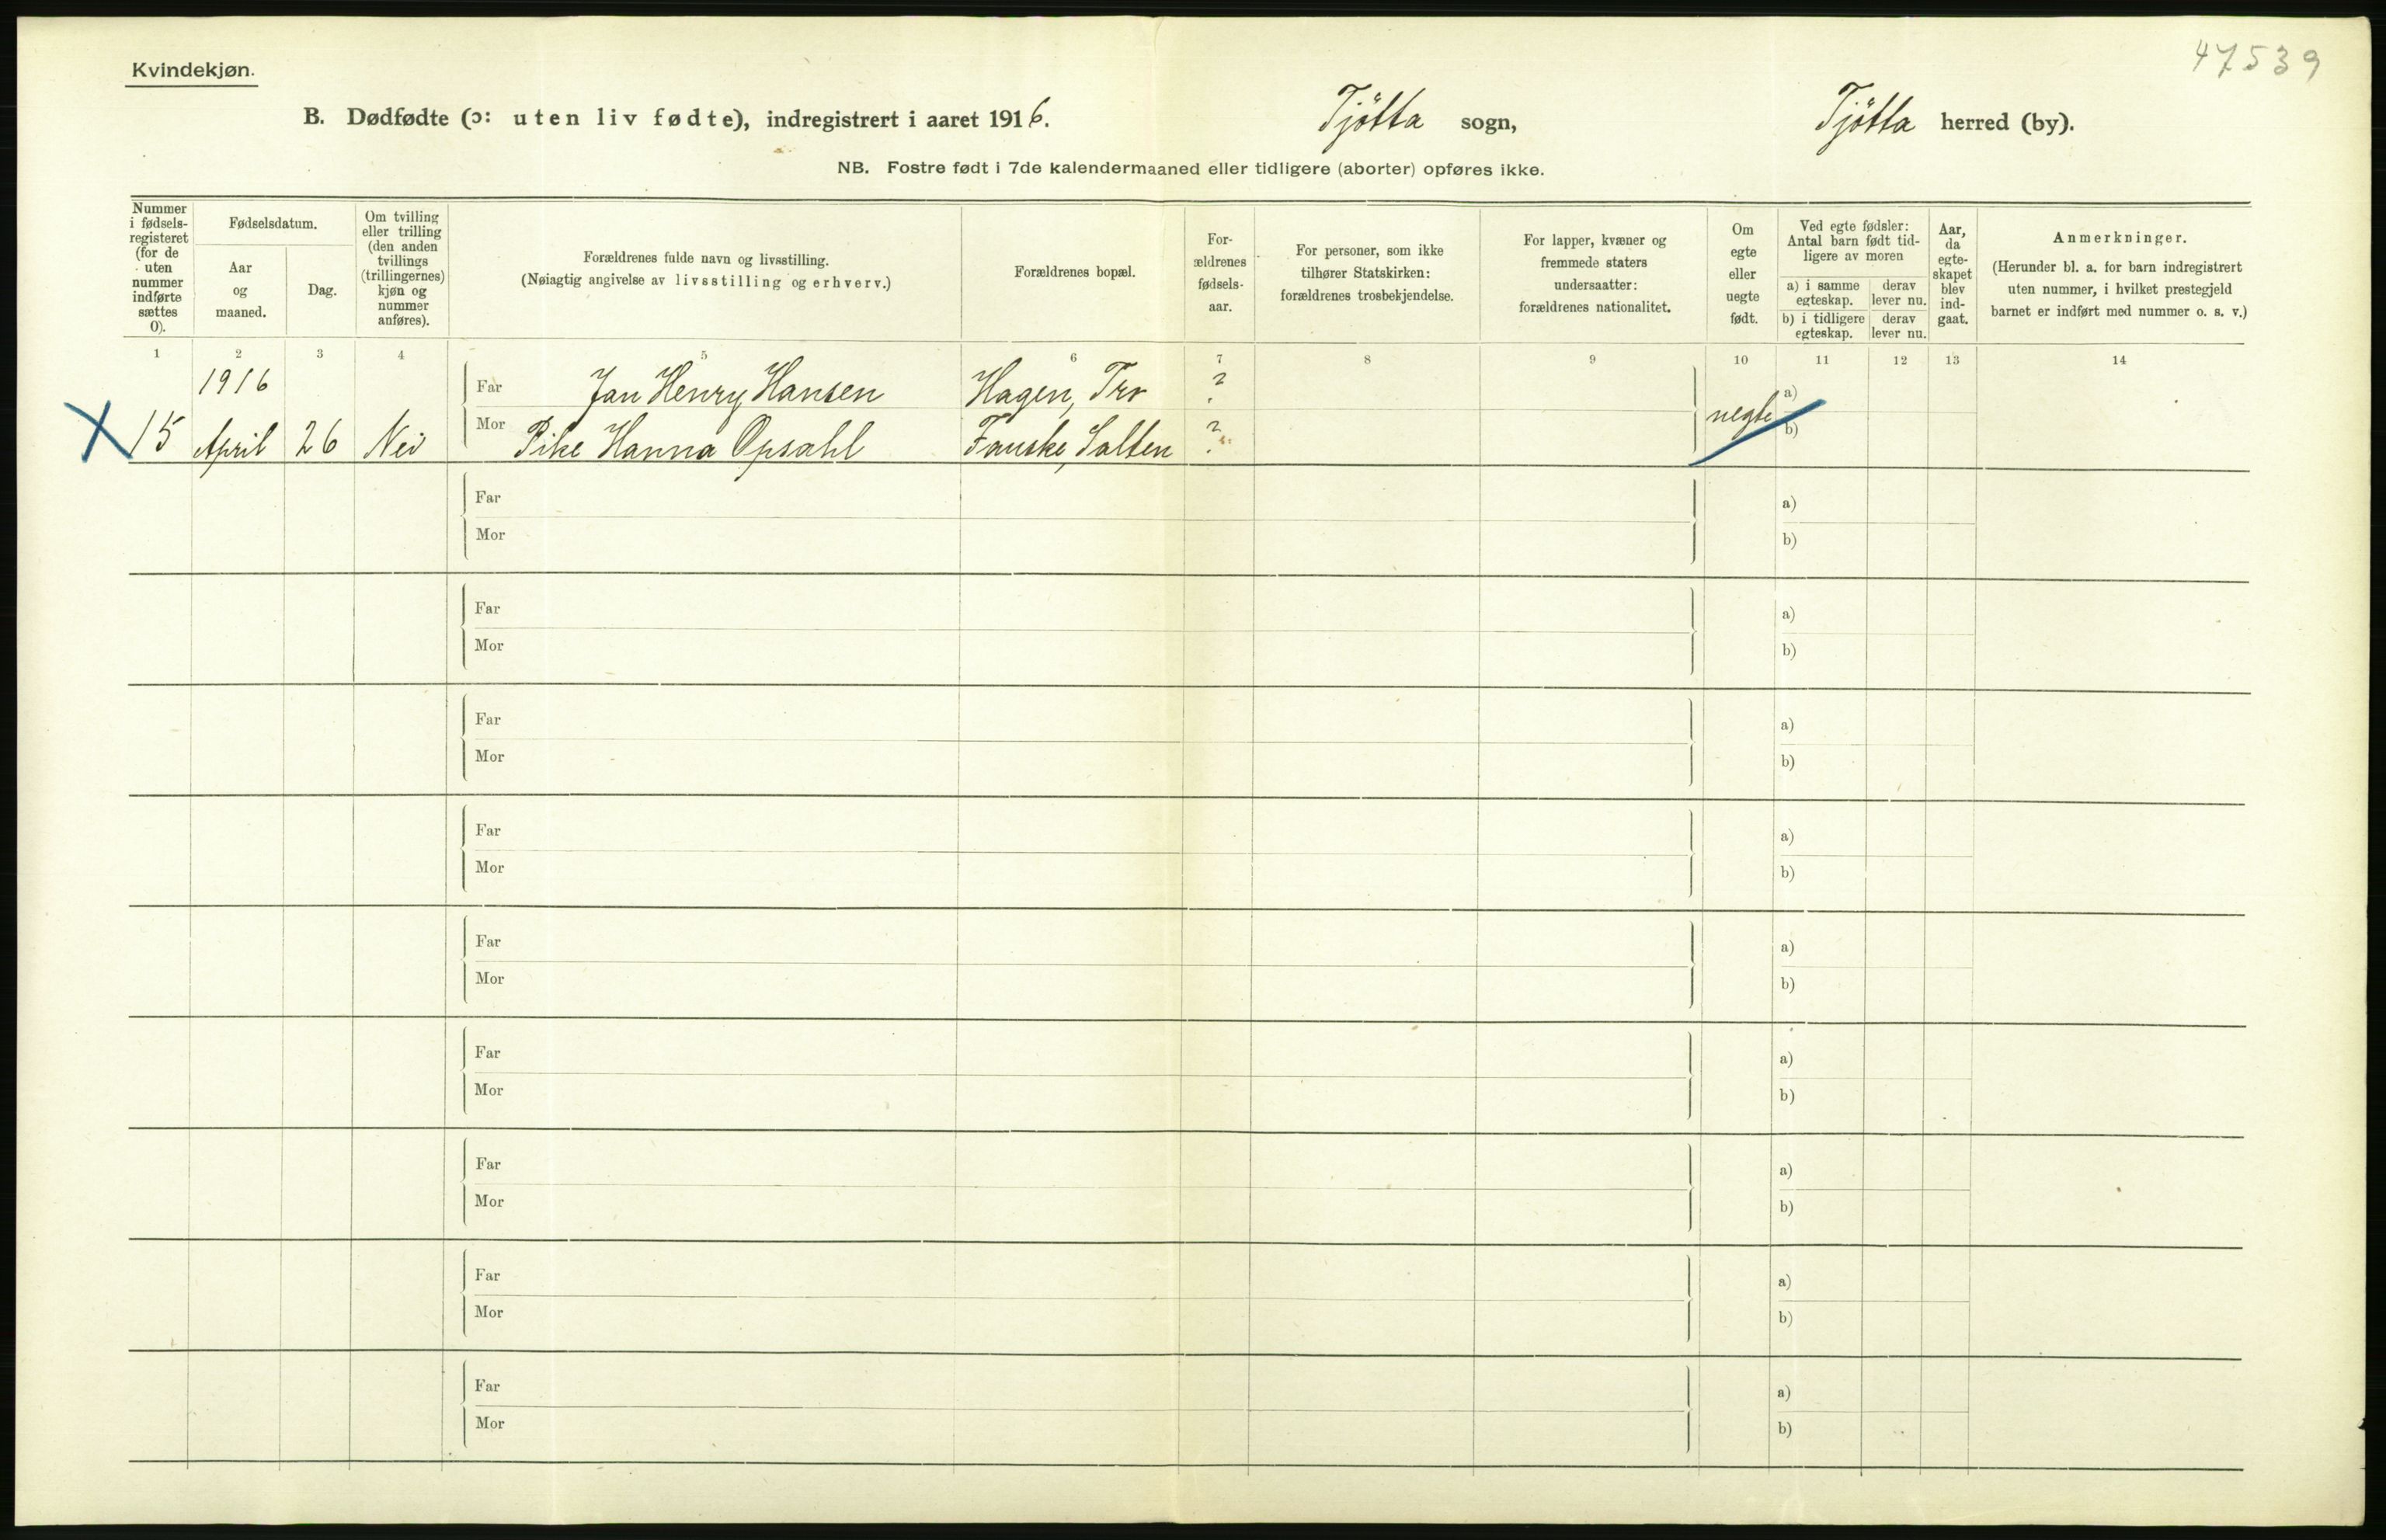 47539
Kvindekjøn.
B. Dødfødte (ɔ: uten liv fødte), indregistrert i aaret 1916. Tjötta sogn, Tjötta herred (by).
NB. Fostre født i 7de kalendermaaned eller tidligere (aborter) opføres ikke.
Nummer
i fødsels-
registeret
(for de
uten
nummer
indførte
sættes
0).
Fødselsdatum.
Aar
og
maaned.
Dag.
Om tvilling
eller trilling
(den anden
tvillings
(trillingernes)
kjøn og
nummer
anføres).
Forældrenes fulde navn og livsstilling.
(Nøiagtig angivelse av livsstilling og erhverv.)
Forældrenes bopæl.
For-
ældrenes
fødsels-
aar.
For personer, som ikke
tilhører Statskirken:
forældrenes trosbekjendelse.
For lapper, kvæner og
fremmede staters
undersaatter:
forældrenes nationalitet.
Om
egte
eller
uegte
født.
Ved egte fødsler:
Antal barn født tid-
ligere av moren
a) i samme
egteskap.
derav
lever nu.
b) i tidligere
egteskap.
derav
lever nu.
Aar,
da
egte-
skapet
blev
ind-
gaat.
Anmerkninger.
(Herunder bl. a. for barn indregistrert
uten nummer, i hvilket prestegjeld
barnet er indført med nummer o. s. v.)
1 2 3 4 5 6 7 8 9 10 11 12 13 14
1916 Far Jan Henry Hansen Hagen, Tro ? a)
X 15 April 26 Nei Mor Pike Hanna Opsahl Fauske, Salten ? uegte b)
Far a)
Mor b)
Far a)
Mor b)
Far a)
Mor b)
Far a)
Mor b)
Far a)
Mor b)
Far a)
Mor b)
Far a)
Mor b)
Far a)
Mor b)
Far a)
Mor b)